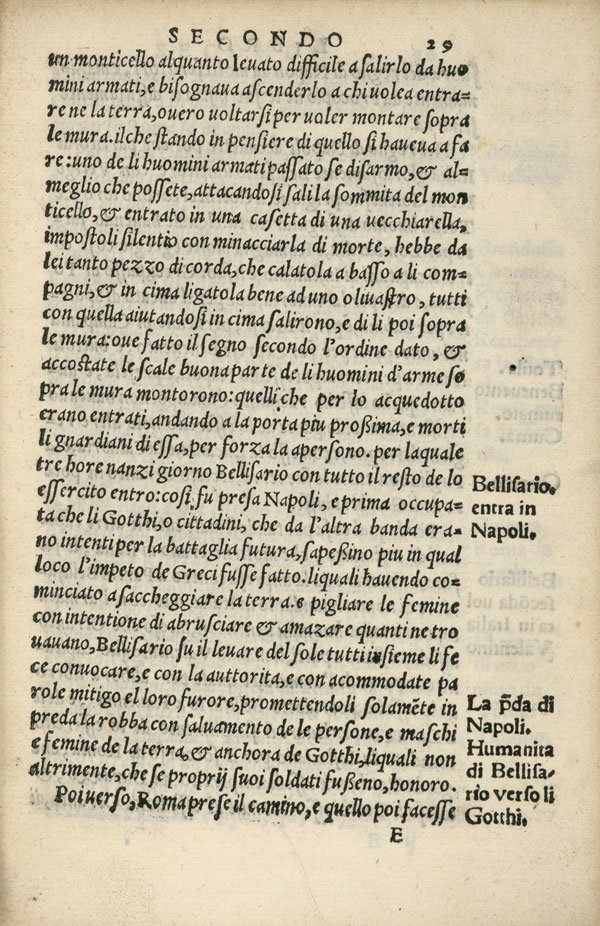 SECONDO 29
un monticello alquanto levato difficile a salirlo da huo
mini armati, e bisognava ascenderlo a chi volea entra=
re ne la terra, overo voltarsi per voler montare sopra
le mura. il che stando in pensiere di quello si haveva a fa
re: uno de li huomini armati passato se disarmo, & al=
meglio che possete, attacandosi sali la sommita del mon
ticello, & entrato in una casetta di una vecchiarella,
impostoli silentio con minacciarla di morte, hebbe da
lei tanto pezzo di corda, che calatola a basso a li com=
pagni, & in cima ligatola bene ad uno olivastro, tutti
con quella aiutandosi in cima salirono, e di li poi sopra
le mura: ove fatto il segno secondo l'ordine dato, &
accostate le scale buona parte de li huomini d'arme so
pra le mura montorono: quelli che per lo acquedotto
erano entrati, andando a la porta piu proßima, e morti
li gnardiani di essa, per forza la apersono. per laquale
tre hore nanzi giorno Bellisario con tutto il resto de lo
essercito entro: cosi fu presa Napoli, e prima occupa=
ta che li Gotthi, o cittadini, che da l'altra banda era=
no intenti per la battaglia futura, sapeßino piu in qual
loco l'impeto de Greci fusse fatto. liquali havendo co=
minciato a saccheggiare la terra. e pigliare le femine
con intentione di abrusciare & amazare quanti ne tro
vavano, Bellisario su il levare del sole tutti insieme li fe
ce convocare, e con la auttorita, e con acommodate pa
role mitigo el loro furore, promettendoli solamēte in
preda la robba con salvamento de le persone, e maschi
e femine de la terra, & anchora de Gotthi, liquali non
altrimente, che se proprij suoi soldati fußeno, honoro.
Poi verso, Roma prese il camino, e quello poi facesse
E
Bellisario.
entra in
Napoli.
La p̄da di
Napoli.
Humanita
di Bellisa-
rio verso li
Gotthi.